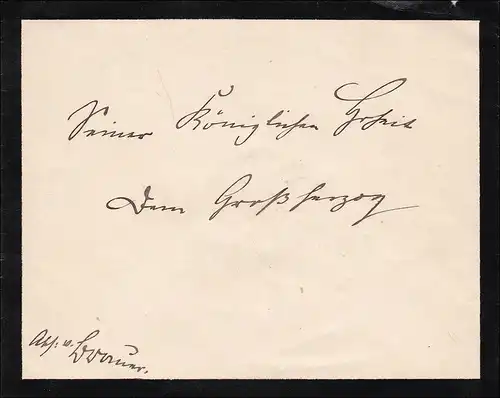 Seiner Königlichen Hoheit
Dem Großherzog
Abs: v. Brauer.